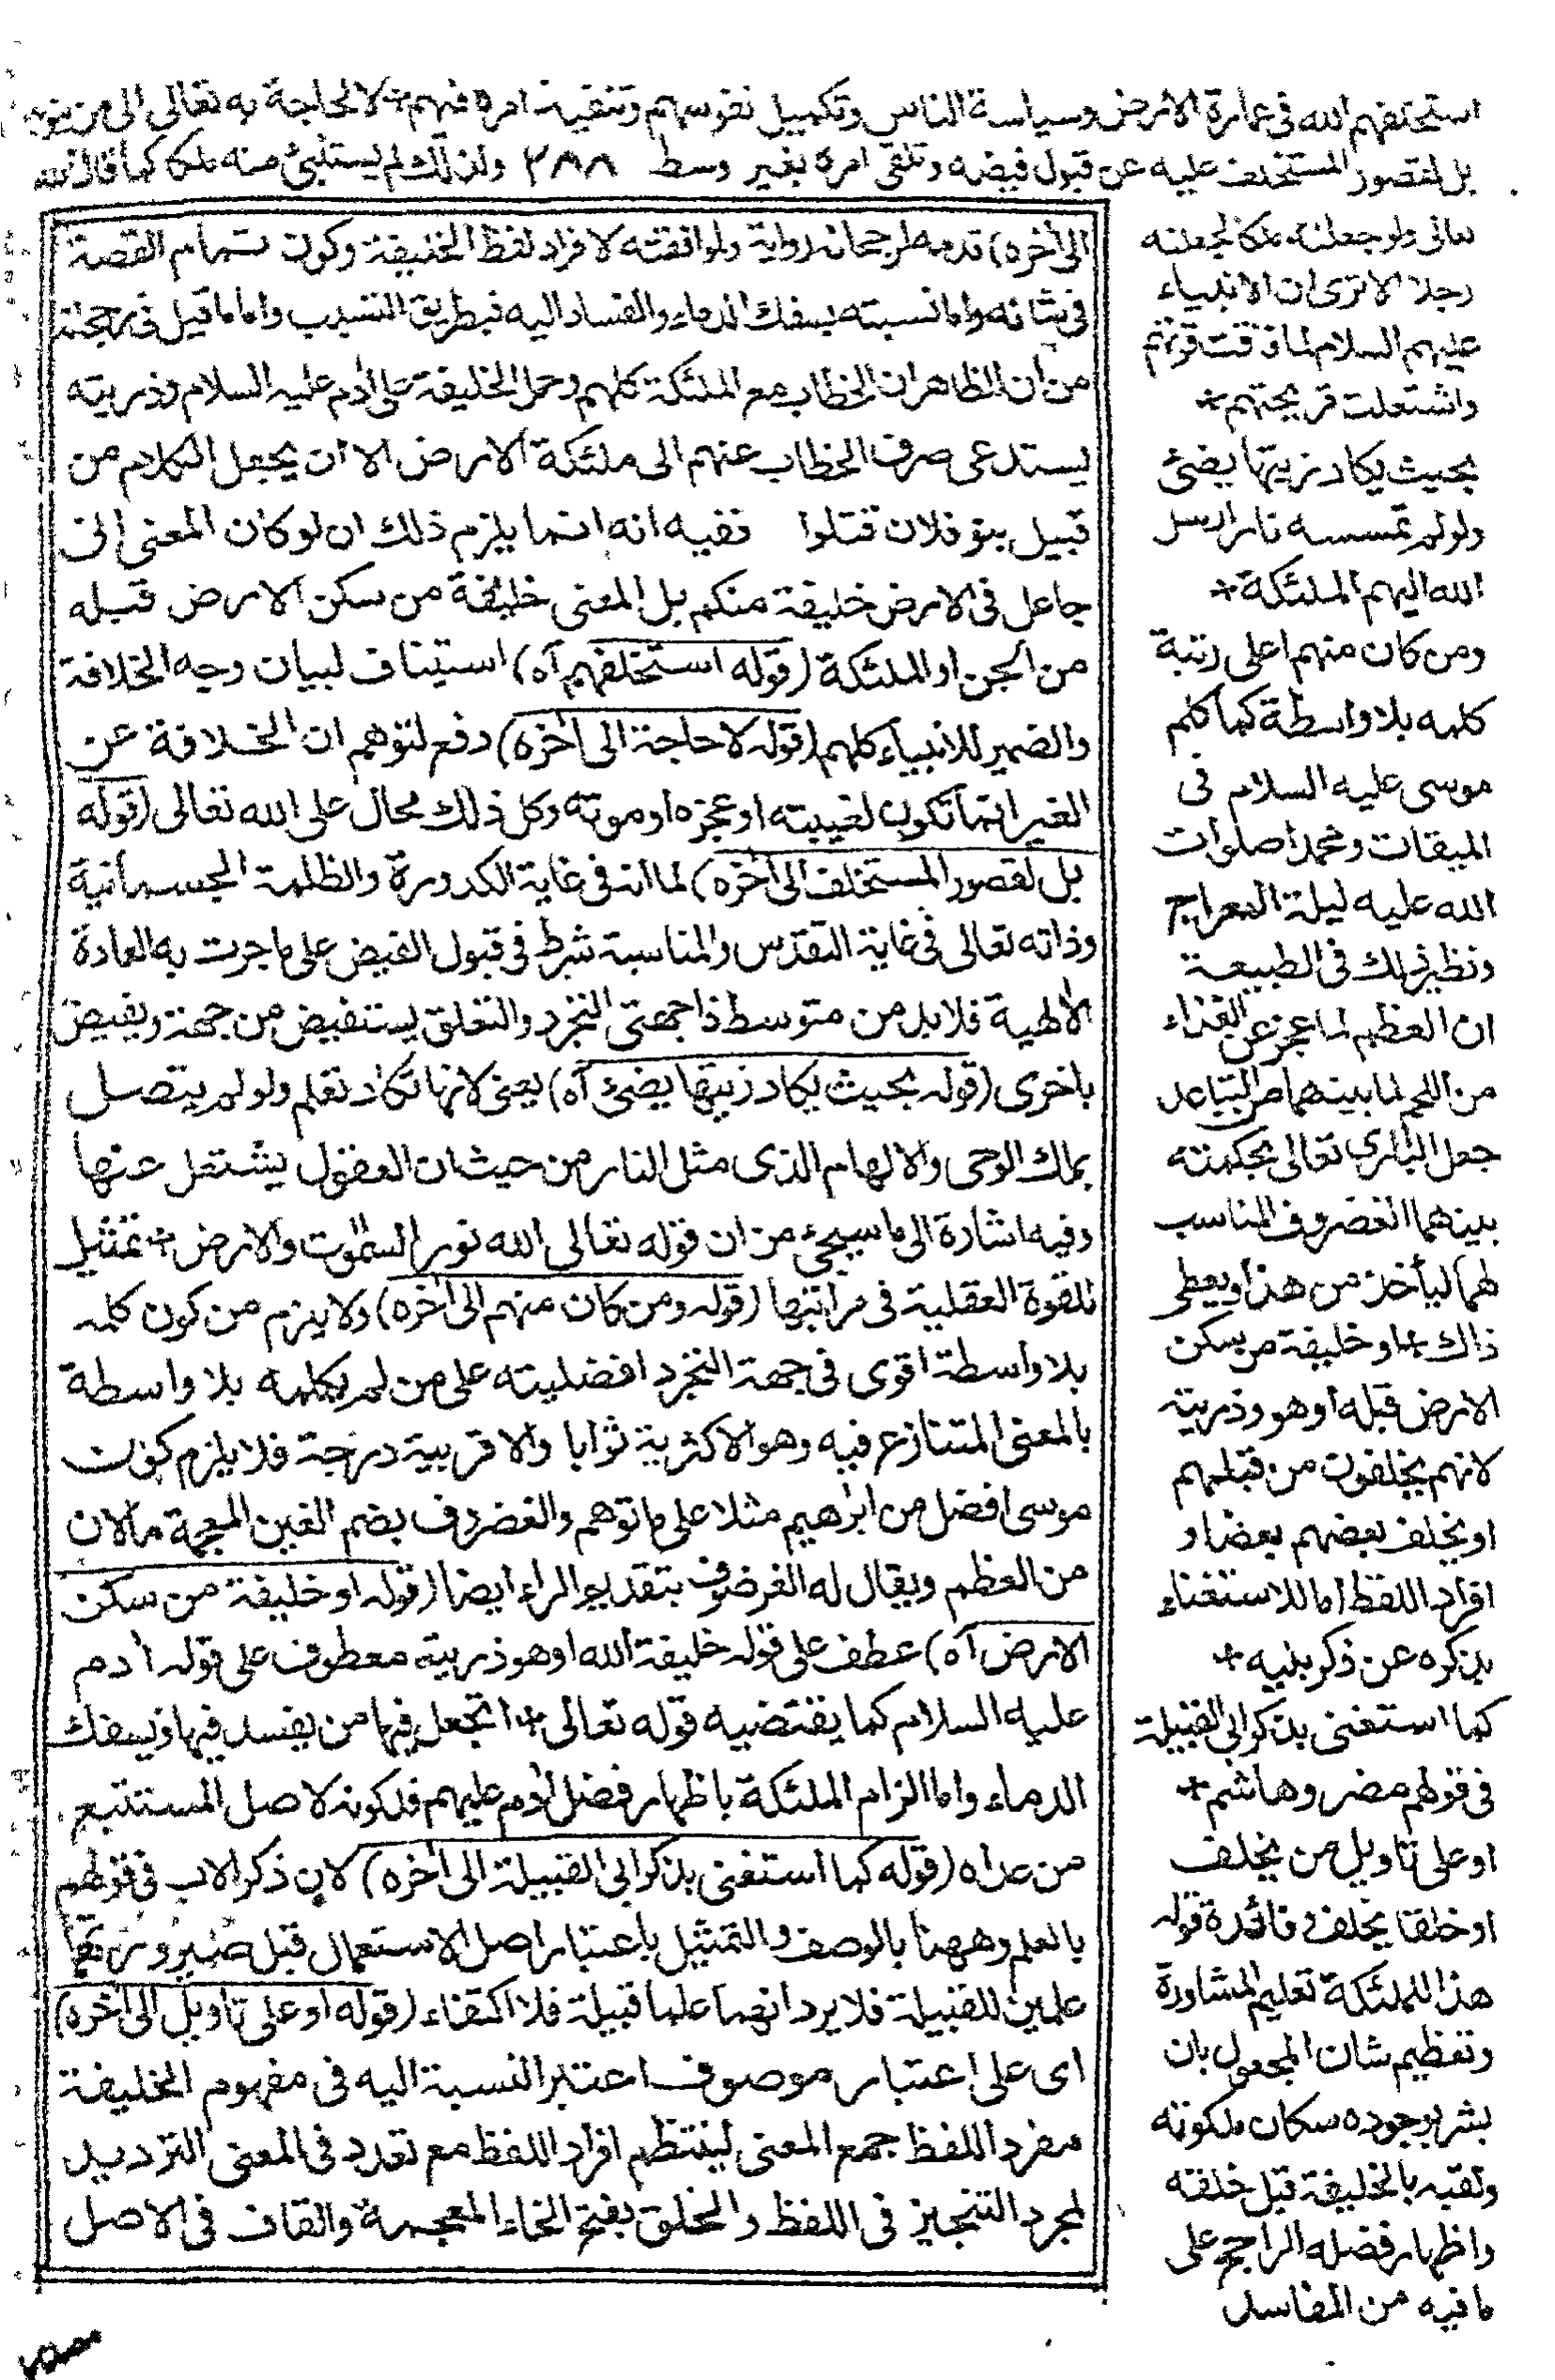 استخلفهم الله فى عمارة الارض وسياسة الناس وتكميل نفوسهم وتنفيذ امره فيهم * لا لحاجة به تعالى الى من ينوبه
بل لقصور المستخلف عليه عن قبول فيضه وتلقى امره بغير وسط ٢٨٨ ولذلك لم يستنبئ منه ملكا كما قال الله
تعالى ولو جعلناه ملكا لجعلناه
رجلا الا ترى ان الانبياء
عليهم السلام لما فاقت قوتهم
واشتعلت قريحتهم *
بحيث يكاد زيتها يضئ
ولولم تمسسه نار ارسل
الله اليهم الملئكة *
ومن كان منهم اعلى رتبة
كلمه بلا واسطة كما كلم
موسى عليه السلام فى
الميقات ومحمدا صلوات
الله عليه ليلة المعراج
ونظير ذلك فى الطبيعة
ان العظم لما عجز عن الغذاء
من اللحم لما بينهما من التباعد
جعل البارى تعالى بحكمته
بينهما الغضروف المناسب
لهما ليأخذ من هذا ويعطى
ذاك * او خليفة من سكن
الارض قبله او هو وذريته
لانهم يخلفون من قبلهم
او يخلف بعضهم بعضا و
افراد اللفظ اما للاستغناء
بذكره عن ذكر بنيه *
كما استغنى بذكر ابى القبيلة
فى قولهم مضر وهاشم *
او على تاويل من يخلف
او خلقا يخلف وفائدة قوله
هذا للملئكة تعليم المشاورة
وتعظيم شان المجعول بان
بشر بوجوده سكان ملكوته
ولقبه بالخليفة قبل خلقه
واظهار فضله الراجح على
ما فيه من المفاسد
الى آخره) قدمه لرجحانه رواية ولموافقته لافراد لفظ الخليفة وكون تمام القصة
فى شانه واما نسبته بسفك الدماء والفساد اليه فبطريق التسبب واما ما قيل فى ترجيحه
من ان الظاهر ان الخطاب مع الملئكة كلهم وحمل الخليفة على آدم عليه السلام وذريته
يستدعى صرف الخطاب عنهم الى ملئكة الارض الا ان يجعل الكلام من
قبيل بنو فلان قتلوا ففيه انه انما يلزم ذلك ان لو كان المعنى انى
جاعل فى الارض خليفة منكم بل المعنى خليفة من سكن الارض قبله
من الجن او الملئكة (قوله استخلفهم آه) استيناف لبيان وجه الخلافة
والضمير للانبياء كلهم (قوله لا حاجة الى آخره) دفع لتوهم ان الخلافة عن
الغير انما تكون لغيبته او عجزه او موته وكل ذلك محال على الله تعالى (قوله
بل لقصور المستخلف الى آخره) لما انه فى غاية الكدورة والظلمة الجسمانية
وذاته تعالى فى غاية التقدس والمناسبة شرط فى قبول الفيض على ما جرت به العادة
الالهية فلا بد من متوسط ذا جهتى التجرد والتعلق يستفيض من جهة ويفيض
باخرى (قوله بحيث يكاد زيتها يضئ آه) يعنى لانها تكاد تعلم ولو لم يتصل
بملك الوحى والالهام الذى مثل النار من حيث ان العقول يشتعل عنها
وفيه اشارة الى ما سيجئ من ان قوله تعالى الله نور السموت والارض * تمثيل
للقوة العقلية فى مراتبها (قوله ومن كان منهم الى آخره) ولا يلزم من كون كلمه
بلا واسطة اقوى فى جهة التجرد افضليته على من لم يكلمه بلا واسطة
بالمعنى المتنازع فيه وهو الاكثرية ثوابا والاقربية درجة فلا يلزم كون
موسى افضل من ابراهيم مثلا على ما توهم والغضروف بضم الغين المعجمة مالان
من العظم ويقال له الغرضوف بتقديم الراء ايضا (قوله او خليفة من سكن
الارض آه) عطف على قوله خليفة الله او هو ذريته معطوف على قوله آدم
عليه السلام كما يقتضيه قوله تعالى * اتجعل فيها من يفسد فيها ويسفك
الدماء واما الزام الملئكة باظهار فضل آدم عليهم فلكونه لاصل المستتبع
من عداه (قوله كما استغنى بذكر ابى القبيلة الى آخره) لان ذكر الاب فى قولهم
بالعلم وههنا بالوصف والتمثيل باعتبار اصل الاستعمال قبل صيرورتهما
علمين للقبيلة فلا يرد انهما علما قبيلة فلا اكتفاء (قوله او على تاويل الى آخره)
اى على اعتبار موصوف اعتبر النسبة اليه فى مفهوم الخليفة
مفرد اللفظ جمع المعنى لينتظم افراد اللفظ مع تعدد فى المعنى الترديد
لمجرد التنجيز فى اللفظ والخلق بفتح الخاء المعجمة والقاف فى الاصل